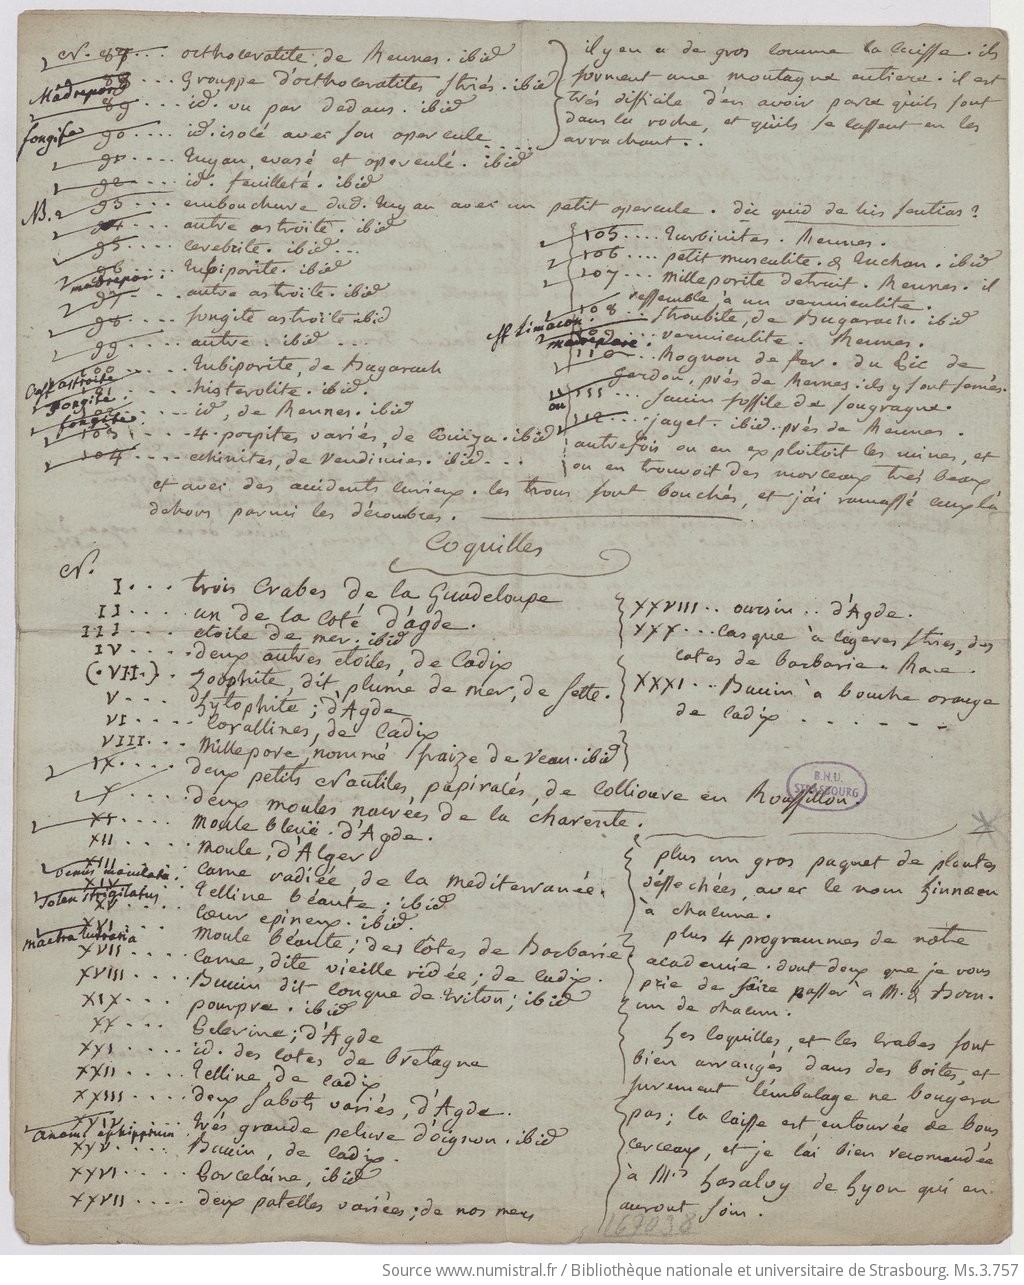 N. 87 .. orthoceratite, de Rennes. ibid
88 ... Grouppe d'orthoceratites striés. ibid
Madrepore
89 .... id. vu par dedans. ibid
fongite
90 .... id. isolé avec son opercule
91 .... Tuyau evasé et operculé. ibid
92 .... id. feuilleté. ibid
NB. 93 .... embouchure dud. Tuyau avec un petit opercule. dic quid de his sentias?
94 ... autre astroïte. ibid
95 .... cerebrite. ibid ...
96 ... Tubiporite. ibid
madrepor.
97 .. autre astroïte. ibid
98 .... fongite astroïte ibid
99 .... autre ibid ...
100 ... Tubiporite, de Bugarach
Cast astroïte
101 .... histerolite. ibid.
fongité
102 .... id, de Rennes. ibid
fongité
103 .... 4 porpites variés, de Couïza. ibid
104 .... echinites, de Vendimies. ibid ...
il y en a de gros comme la cuisse. ils
forment une montagne entiere. il est
très difficile d'en avoir parce qu'ils sont
dans la roche, et qu'ils se cassent en les
arrachant ..
105 .... Turbinites. Rennes.
106 .... petit musculite. & Tuchan. ibid
107 ... Milleporite detruit. Rennes. il
ressemble à un vermiculite.
108 ... Strombite, de Bugarach. ibid
Af limaçon.
109 .. vermiculite. Rennes.
madrepore
110 ... Rognon de fer. du Pic de
Cardou, près de Rennes. ils y sont semés.
111 ... fossile de fougragne.
ou
112 ... jayet. ibid. près de Rennes.
autrefois on en exploitoit les mines, et
on en trouvoit des morceaux très beaux
et avec des accidents curieux. les trous sont bouchés, et j'ai ramassé
dehors parmi les décombres.
Coquilles
N.
I ... trois Crabes de la Guadeloupe
II .... un de la Coté d'agde.
III .... etoile de mer. ibid
IV ..... deux autres etoiles, de Cadix
(.VII.) . Zoophite, dit plume de mer, de Sette.
V .... Lytophite; d'Agde
VI ..... Corallines, de Cadix
VIII ... Millepore, nommé fraize de Veau. ibid
IX .... deux petits Nautiles papiracés, de Collioure en Roussillon.
X .... deux moules nacrées de la charente.
XI .... Moule bleüe. d'Agde.
XII .... moule, d'Alger
XIII came radiée de la mediterranée.
Venus maculata.
XIV Telline béante; ibid
Solen strigilatus
XV .... Cœur epineux. ibid.
XVI .... Moule Béante; des Côtes de Barbarie
Mactra lutraria
XVII .... Came, dite vieille ridée; de Cadix.
XVIII ... Buccin dit conque de triton; ibid
XIX .... pourpre. ibid
XX .... Pelerine; d'Agde
XXI .... id. des Cotes de Bretagne
XXII .... Telline, de Cadix
XXIII .... deux sabots variés, d'Agde.
XXIV .... très grande pelure d'oignon. ibid
anomi ephippium
XXV .... Buccin, de Cadix.
XXVI .... Porcelaine, ibid
XXVII .... deux patelles variées; de nos mers
XXVIII .. oursin .. d'Agde.
XXX ... Casque à legeres stries, des
cotes de Barbarie. Rare.
XXXI .. Buccin à bouche orange
de Cadix . . . . . . .
B.N.U.
STRASBOURG
plus un gros paquet de plantes
desséchées, avec le nom Linneen
à chacune.
plus 4 programmes de notre
academie. dont deux que je vous
prie de faire passer à M. de Born.
un de chacun.
Les Coquilles, et les Crabes sont
bien arrangés dans des boites, et
surement l'embalage ne bougera
pas; la caisse est entourée de bons
cerceaux, et je l'ai bien recomandée
à Mrs de Lyon qui en
auront soin.
169038
Source www.numistral.fr / Bibliothèque nationale et universitaire de Strasbourg. Ms.3.757